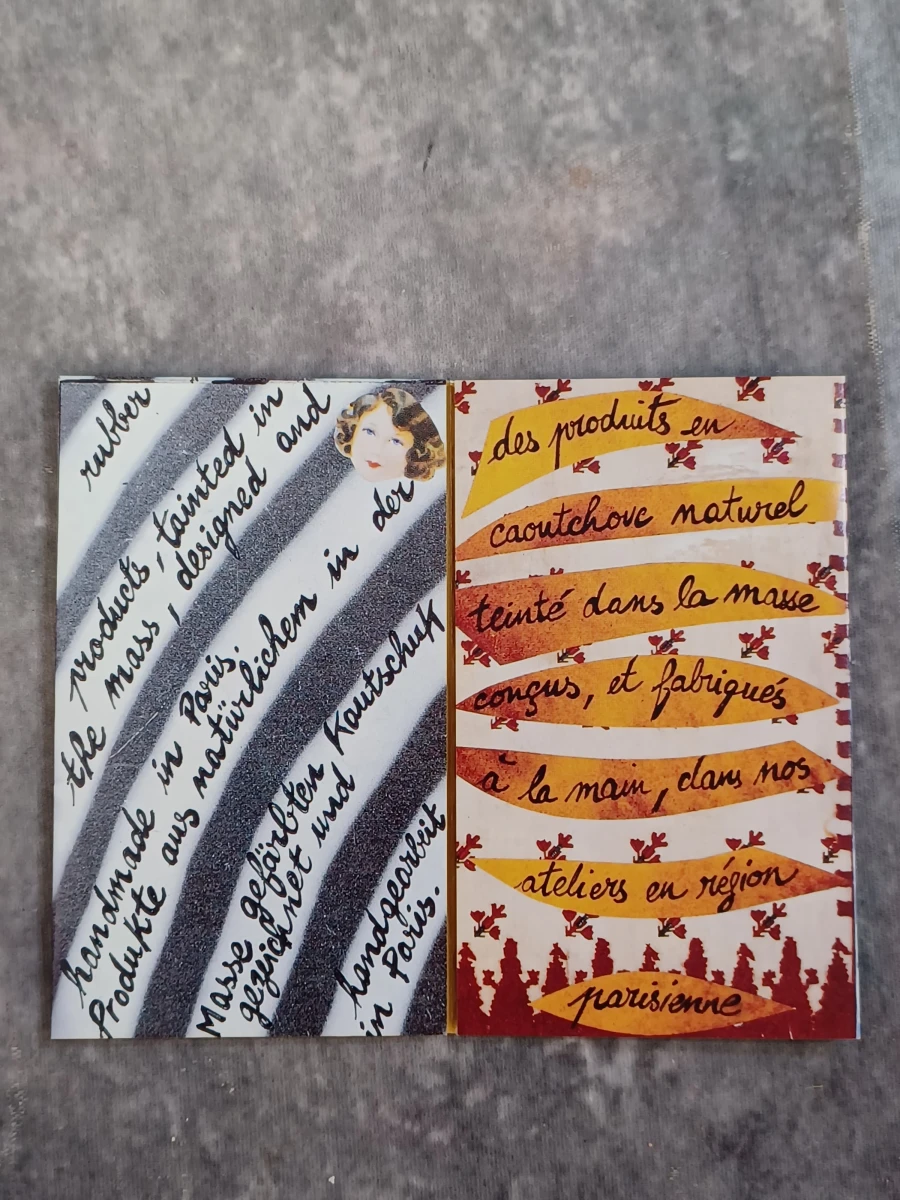 rubber
products, tainted in
the mass, designed and
handmade in Paris.
Produkte aus natürlichem in der
Masse gefärbten Kautschuk
gezeichnet und
handgearbeit
in Paris.
des produits en
caoutchouc naturel
teinté dans la masse
conçus, et fabriqués
à la main, dans nos
ateliers en région
parisienne